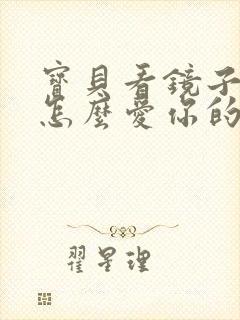 寶貝看鏡子
怎麼愛你的
翟星理